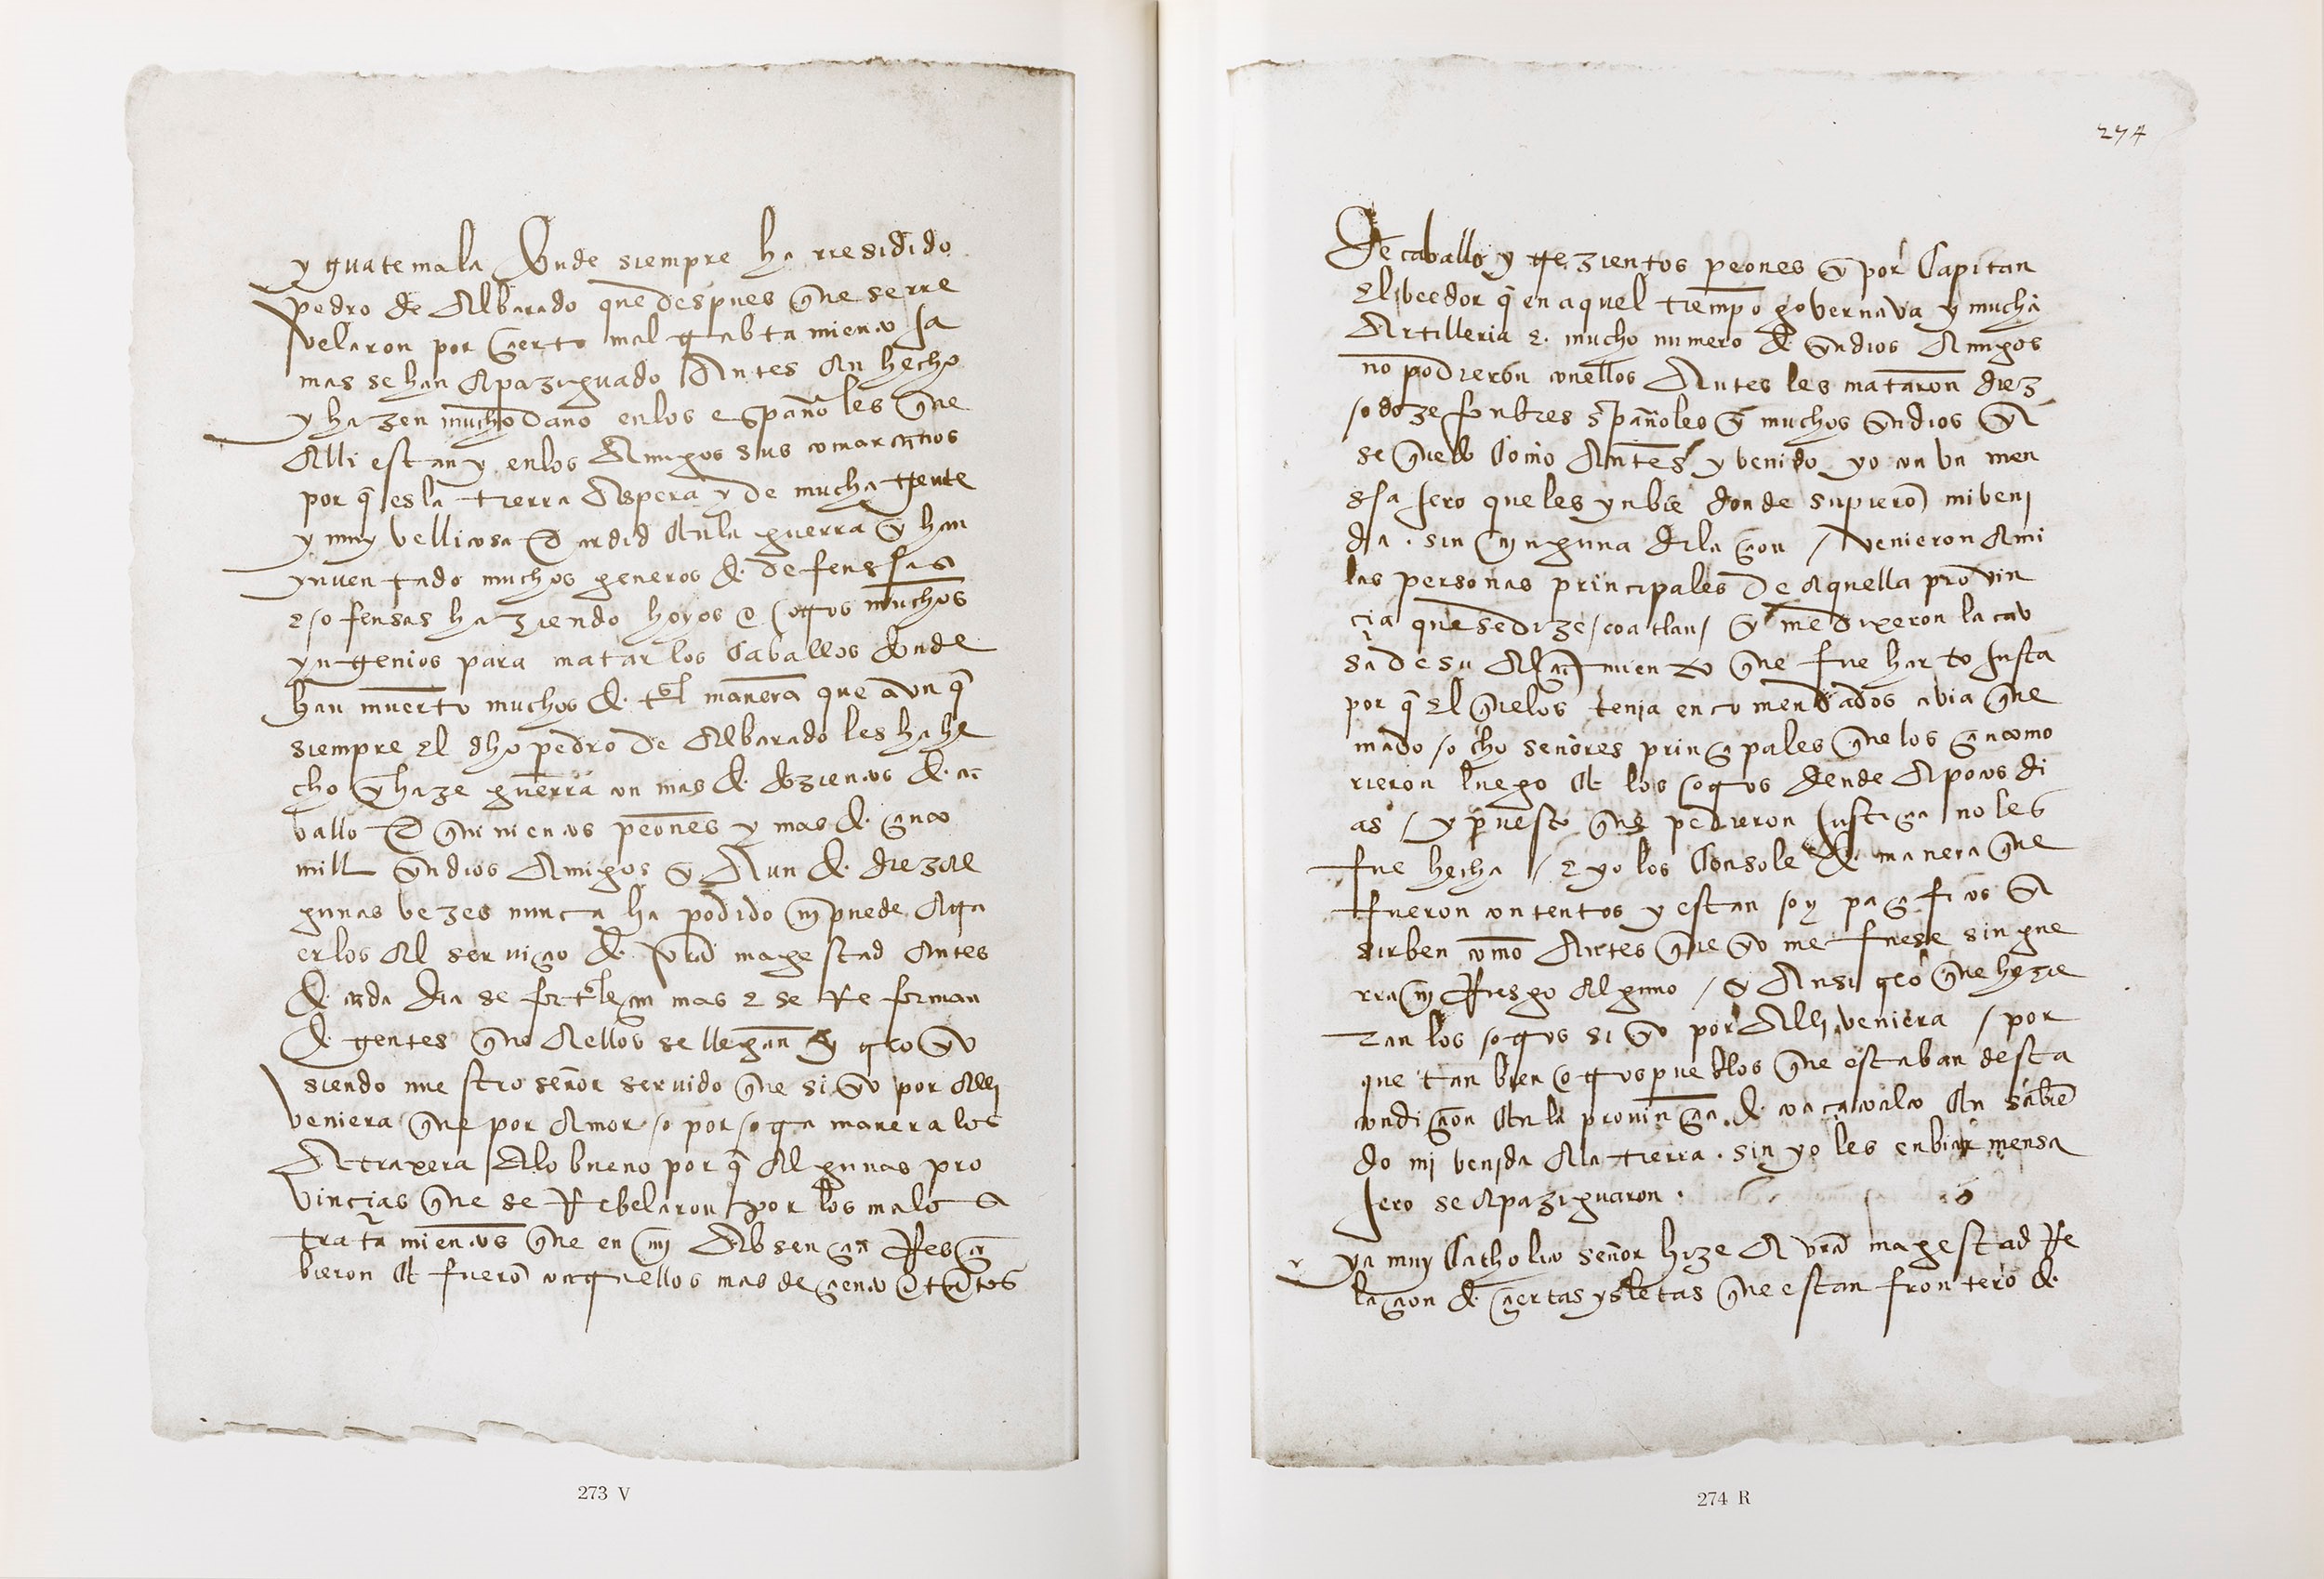 y guatemala donde siempre ha rresidido
pedro de Albarado que despues que se rre
velaron por çierto mal trabtamiento ja
mas se han Apaziguado Antes an hecho
y hazen mucho daño en los españoles que
Alli estan y en los Amigos sus comarcanos
por q̃ es la tierra Aspera y de mucha gente
y muy bellicosa e ardid en la guerra y han
ynventado muchos generos de defenssas
e ofensas haziendo hoyos e otros muchos
yngenios para matar los Caballos donde
han muerto muchos de tal manera que avn q̃
siempre el dho pedro de Albarado les ha he
cho y haze guerra con mas de dozientos de ca
vallo e quinientos peones y mas de çinco
mill yndios Amigos y Aun de diez al
gunas bezes nunca ha podido ni puede Atra
erlos Al serviçio de vra magestad Antes
de cada dia se fortaleçen mas e se Reforman
de gentes que A ellos se llegan y creo yo
siendo nuestro señor servido que si yo por alli
veniera que por Amor o por otra manera los
Atraxera A lo bueno por q̃ Algunas pro
vinçias que se Rebelaron por los malos
tratamientos que en mi Absençia Resçi
bieron et fuerõ contra ellos mas de çiento e tantos
274
De caballo y trezientos peones y por Capitan
El beedor q̃ en aquel tiempo governava y mucha
Artilleria e mucho numero de yndios Amigos
no podieron con ellos Antes les mataron diez
o doze honbres españoles y muchos yndios y
se quedo Como Antes y benido yo con vn men
ssajero que les ynbie donde supierõ mi beni
da sin ninguna dilaçion / venieron A mi
las personas principales de aquella provin
çia que se dize / coatlan / y me dixeron la cav
sa de su Alçamiento que fue harto justa
por q̃ el que los tenia encomendados abia que
mado ocho señores prinçipales que los çinco mo
rieron luego et los otros dende A pocos di
as / y puesto que pedieron justiçia no les
fue hecha / e yo los Console de manera que
fueron contentos y estan oy paçificos y
sirben como Antes que yo me fuese sin gue
rra ni Riesgo Alguno / y Ansi creo que hizie
ran los otros si yo por Alli veniera / por
que tan bien otros pueblos que estaban desta
condiçion en la provinçia de coaçacoalco en sabiẽ
do mi benida A la tierra sin yo les enbiar mensa
jero se apaziguaron
ya muy Catholico señor hize A vra magestad Re
laçion de çiertas ysletas que estan frontero de
273 V
274 R